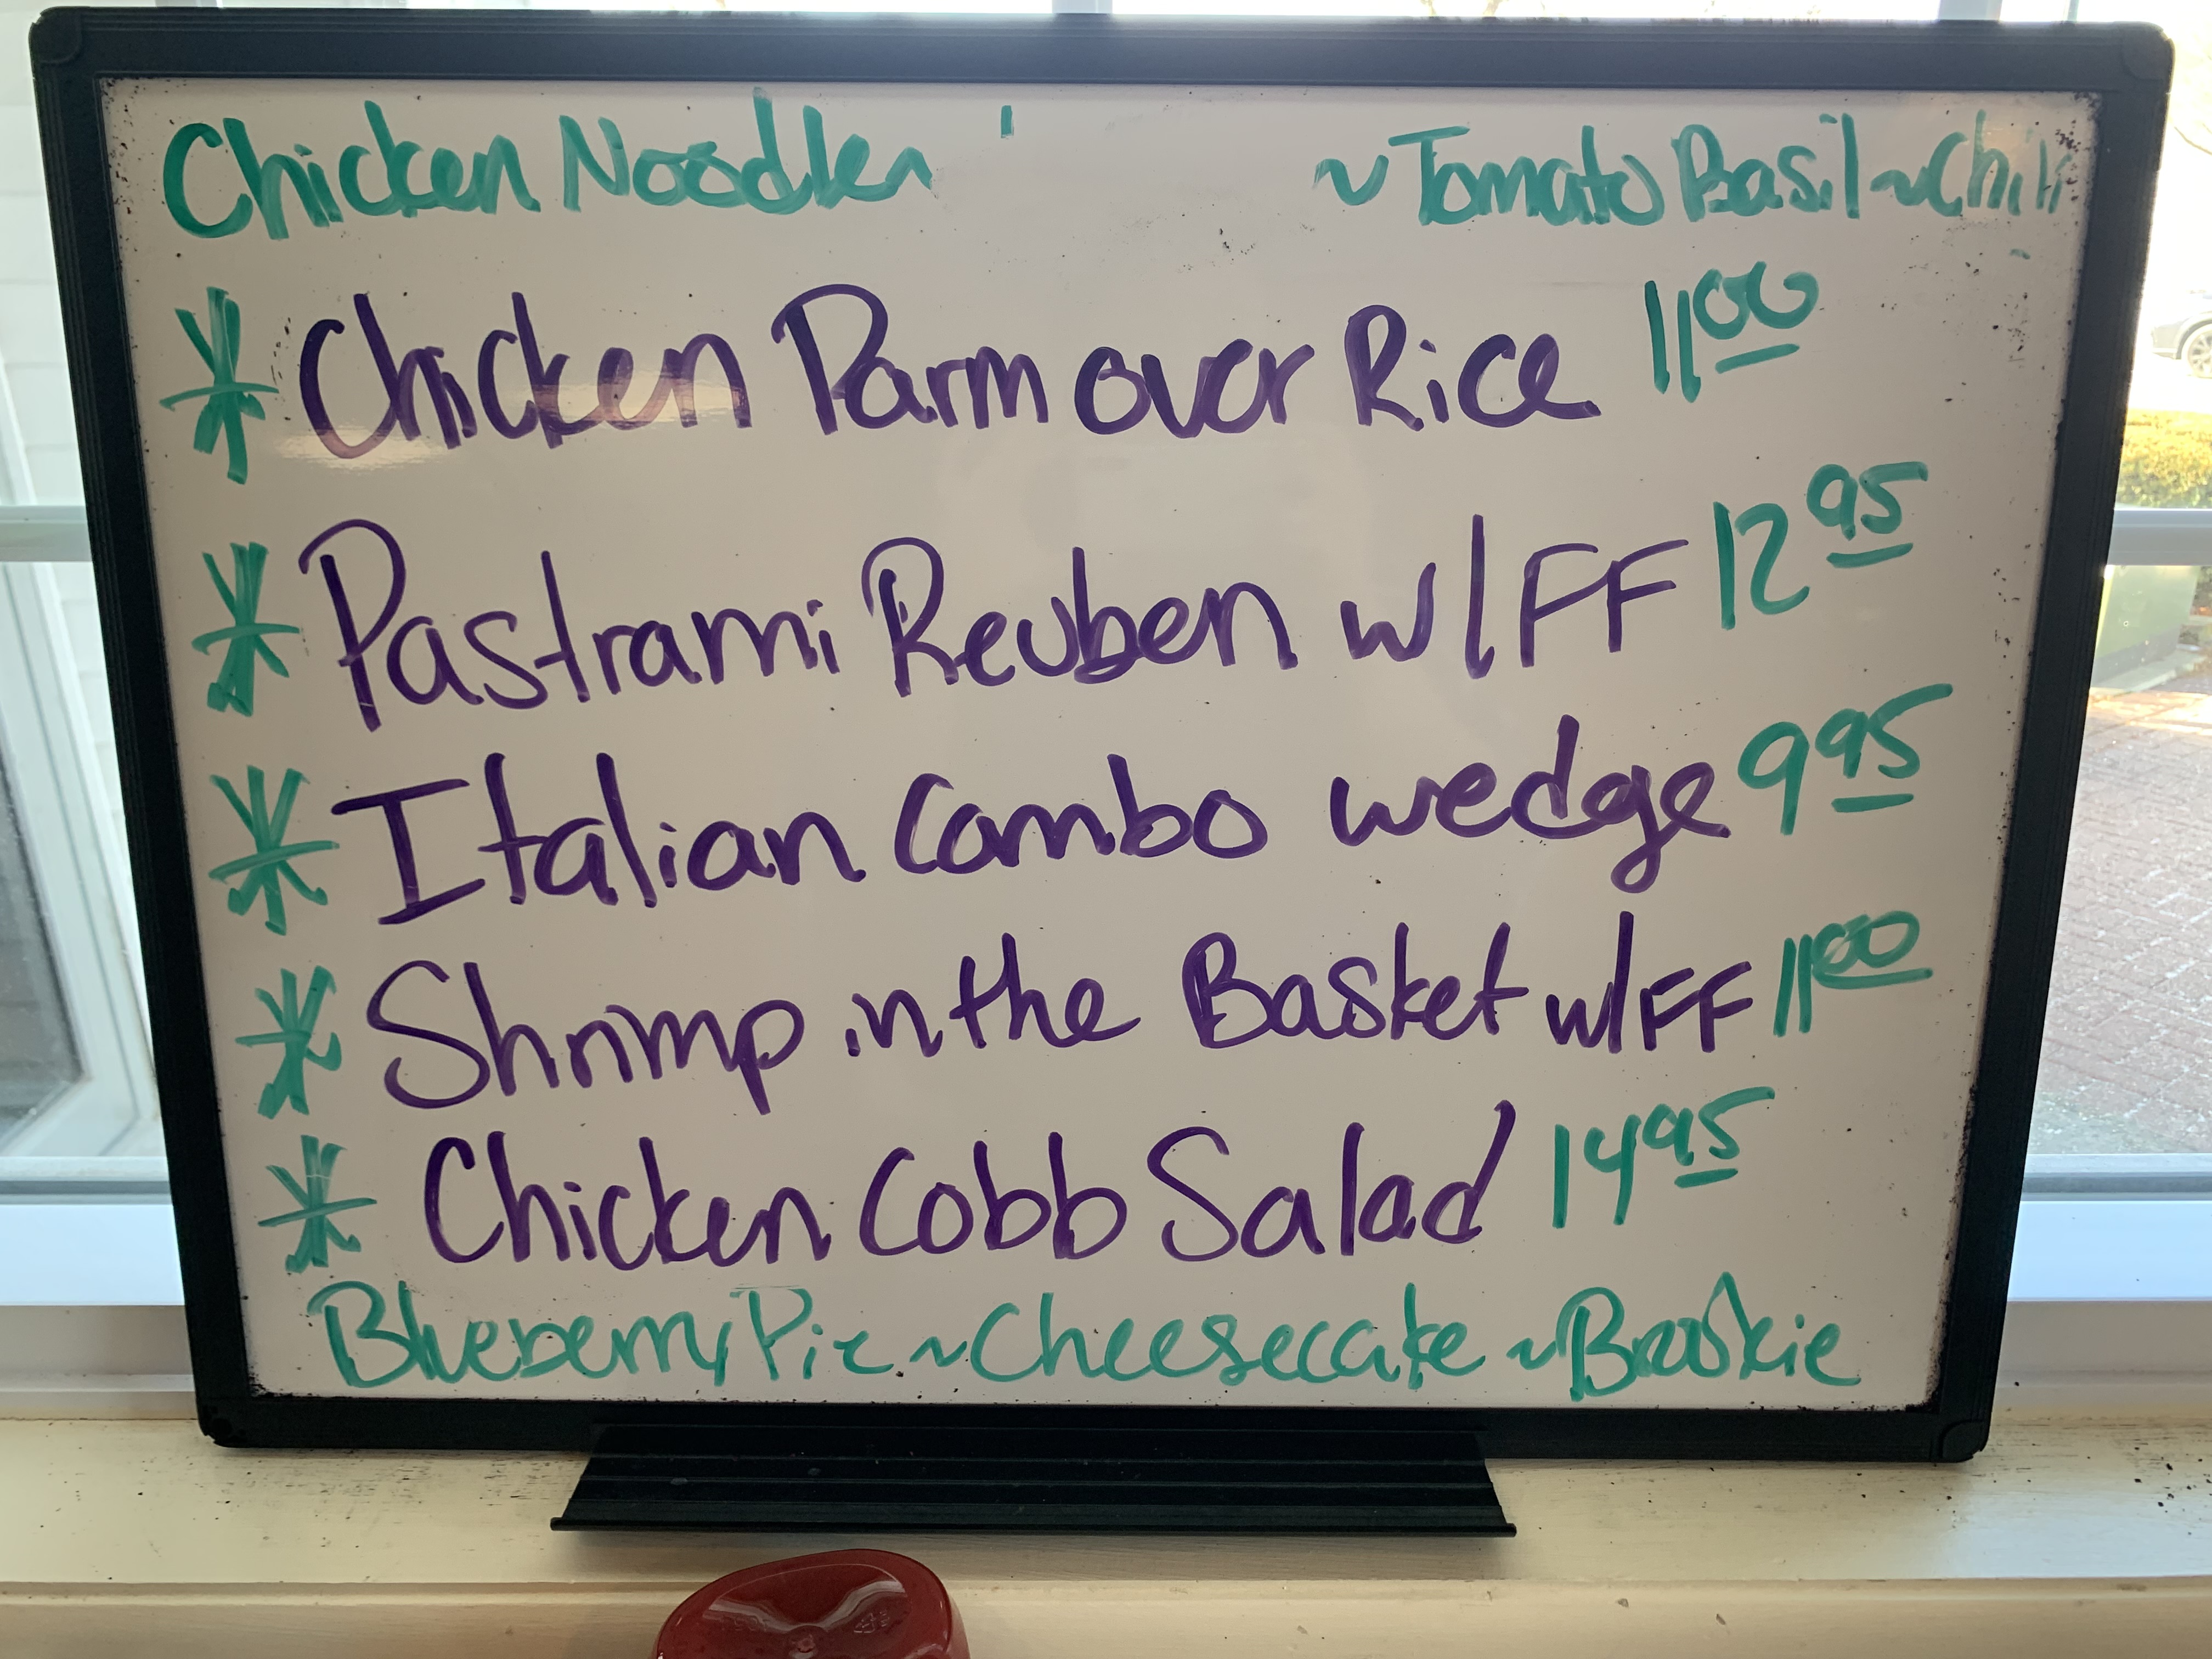 Chicken Noodle ~Tomato Basil ~Chili
* Chicken Parm over Rice 11.00
* Pastrami Reuben w/FF 12.95
* Italian Combo wedge 9.95
* Shrimp in the Basket w/FF 11.00
* Chicken Cobb Salad 14.95
Blueberry Pie ~Cheesecake ~Brookie